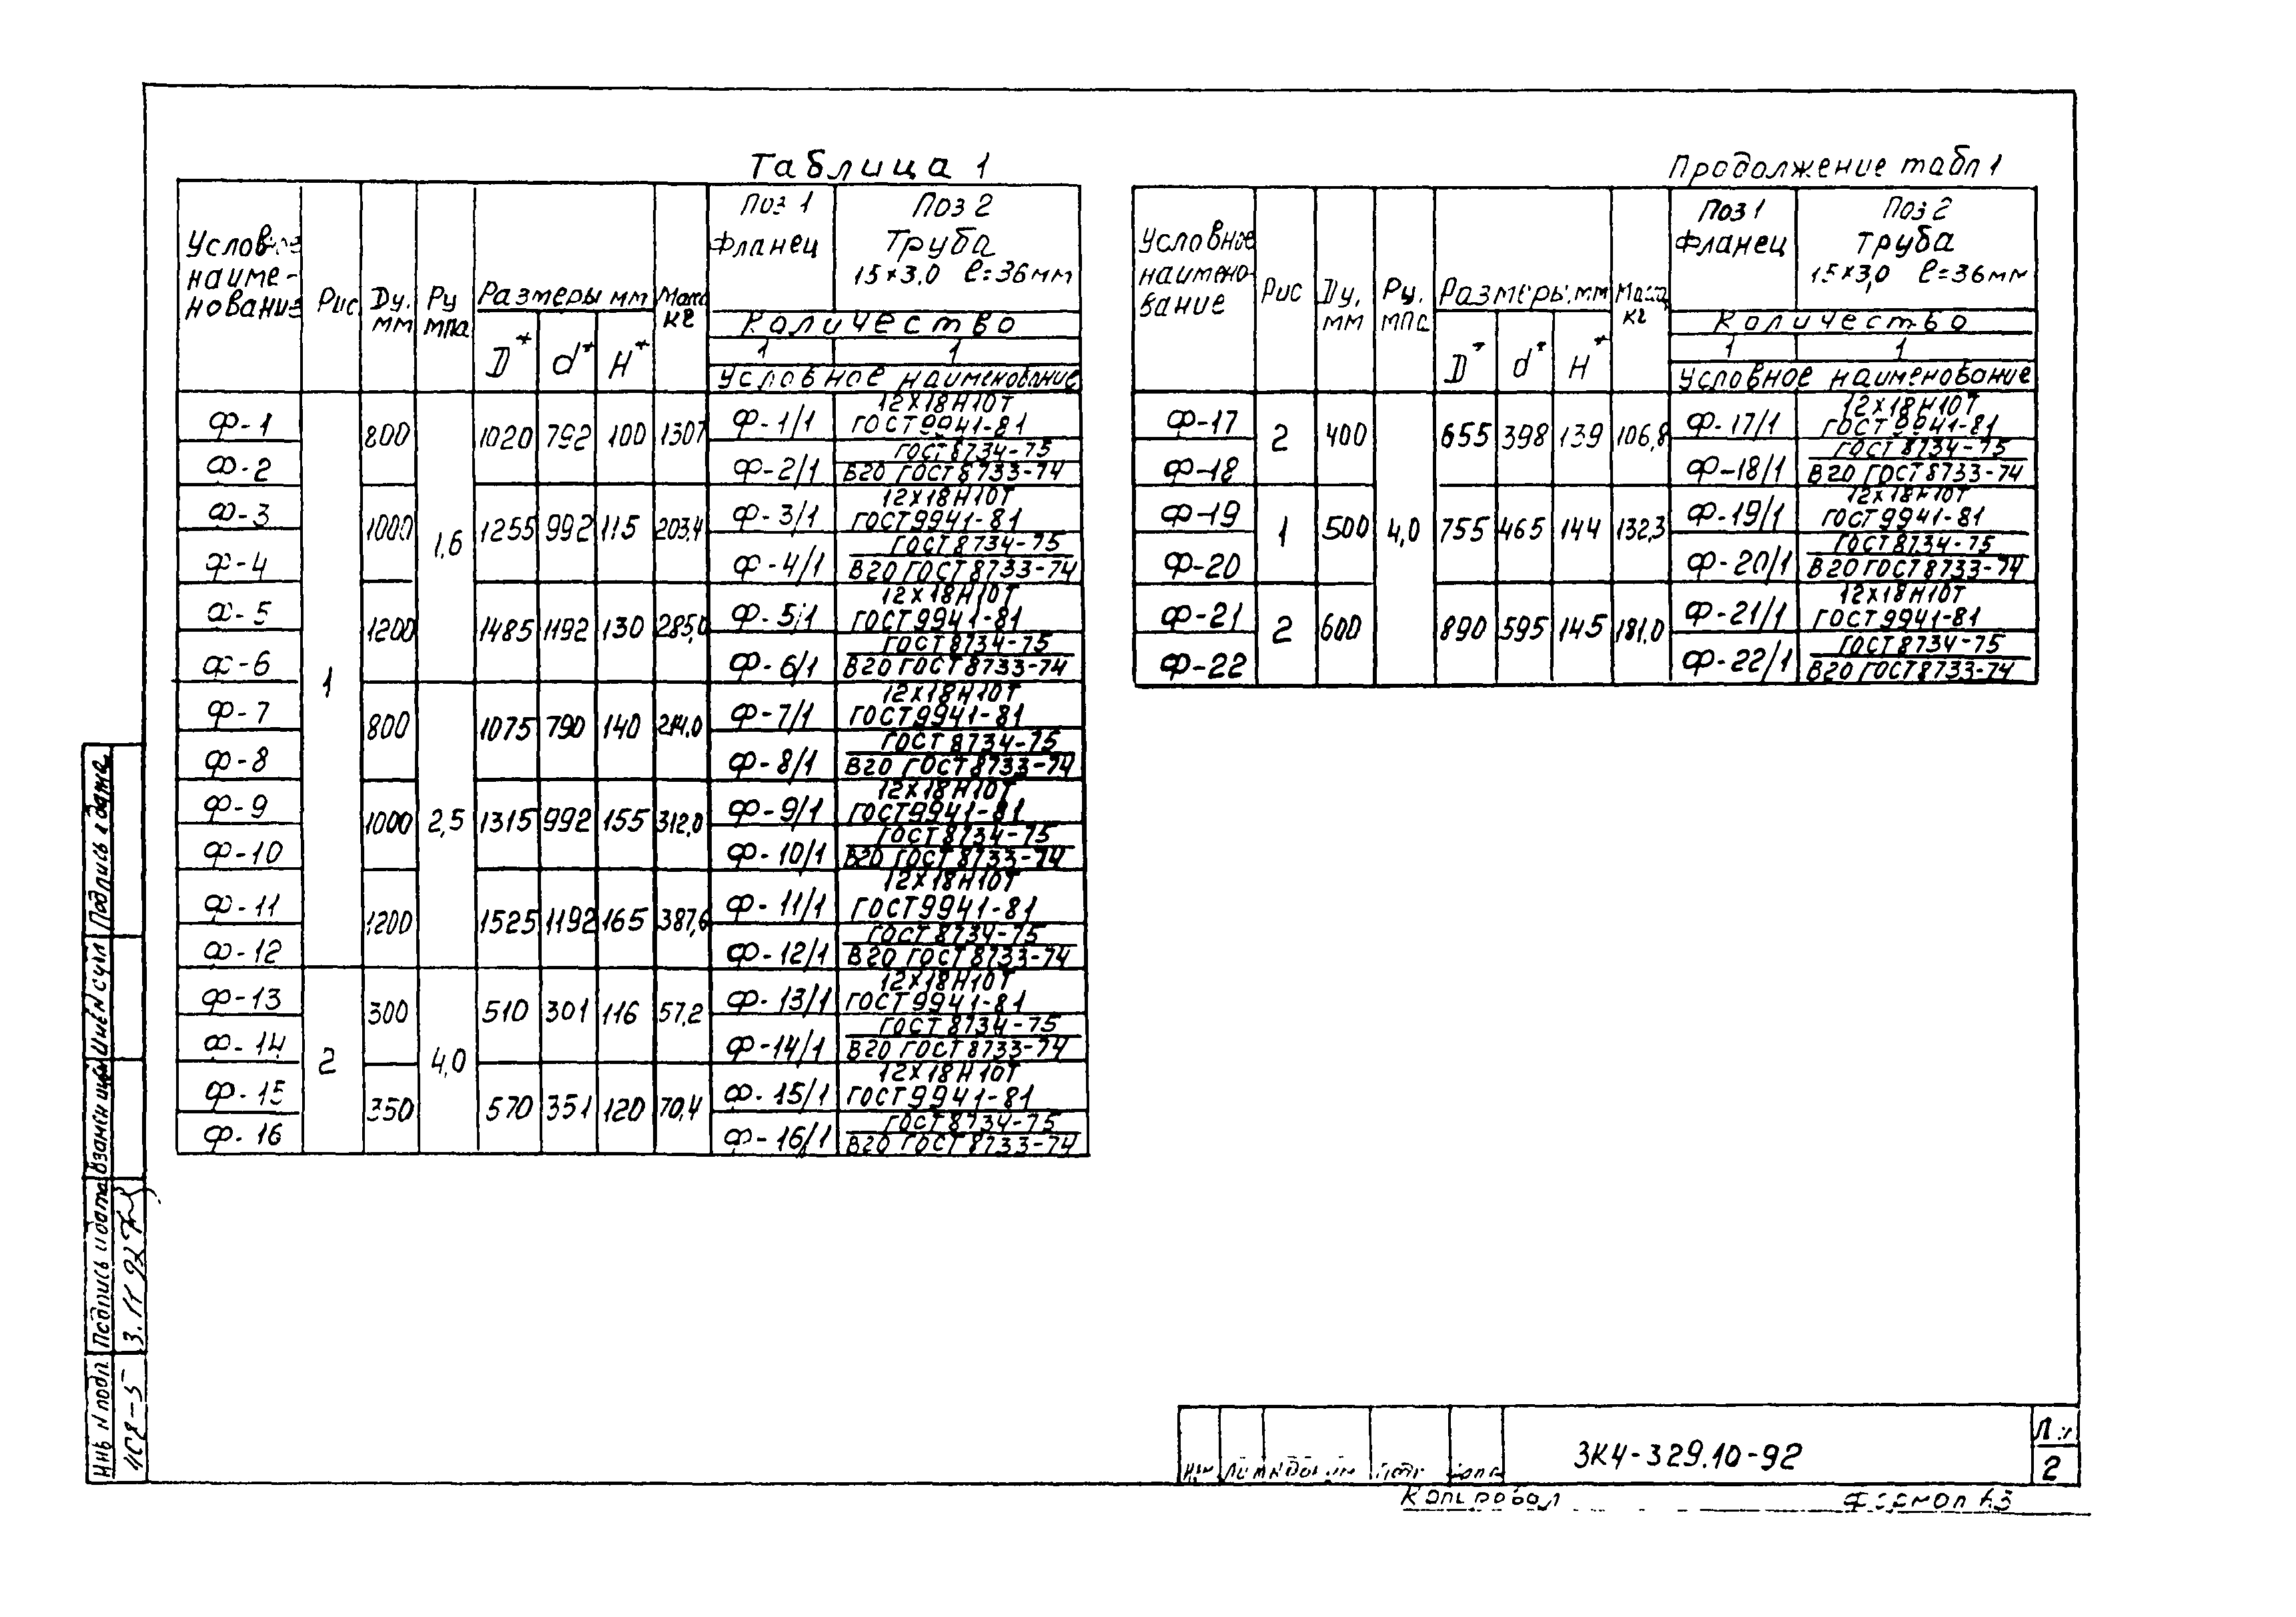 Таблица 1
Условное наиме-нование Рис. Dу, мм Pу МПа Размеры мм D* d* H* Масса кг Поз 1 Фланец Поз 2 Труба 15×3,0 ℓ=36мм
Количество
1 1
Условное наименование
Ф-1 1 800 1,6 1020 792 100 130,7 Ф-1/1 12Х18Н10Т ГОСТ 9941-81
Ф-2 Ф-2/1 ГОСТ 8734-75 В20 ГОСТ 8733-74
Ф-3 1000 1255 992 115 203,4 Ф-3/1 12Х18Н10Т ГОСТ 9941-81
Ф-4 Ф-4/1 ГОСТ 8734-75 В20 ГОСТ 8733-74
Ф-5 1200 1485 1192 130 285,0 Ф-5/1 12Х18Н10Т ГОСТ 9941-81
Ф-6 Ф-6/1 ГОСТ 8734-75 В20 ГОСТ 8733-74
Ф-7 800 2,5 1075 790 140 214,0 Ф-7/1 12Х18Н10Т ГОСТ 9941-81
Ф-8 Ф-8/1 ГОСТ 8734-75 В20 ГОСТ 8733-74
Ф-9 1000 1315 992 155 312,0 Ф-9/1 12Х18Н10Т ГОСТ 9941-81
Ф-10 Ф-10/1 ГОСТ 8734-75 В20 ГОСТ 8733-74
Ф-11 1200 1525 1192 165 387,6 Ф-11/1 12Х18Н10Т ГОСТ 9941-81
Ф-12 Ф-12/1 ГОСТ 8734-75 В20 ГОСТ 8733-74
Ф-13 2 300 4,0 510 301 116 57,2 Ф-13/1 12Х18Н10Т ГОСТ 9941-81
Ф-14 Ф-14/1 ГОСТ 8734-75 В20 ГОСТ 8733-74
Ф-15 350 570 351 120 70,4 Ф-15/1 12Х18Н10Т ГОСТ 9941-81
Ф-16 Ф-16/1 ГОСТ 8734-75 В20 ГОСТ 8733-74
Продолжение табл 1
Условное наимено-вание Рис Dу, мм Pу, МПа Размеры, мм D* d* H* Масса, кг Поз 1 Фланец Поз 2 Труба 15×3,0 ℓ=36мм
Количество
1 1
Условное наименование
Ф-17 2 400 4,0 655 398 139 106,8 Ф-17/1 12Х18Н10Т ГОСТ 9941-81
Ф-18 Ф-18/1 ГОСТ 8734-75 В20 ГОСТ 8733-74
Ф-19 1 500 755 465 144 132,3 Ф-19/1 12Х18Н10Т ГОСТ 9941-81
Ф-20 Ф-20/1 ГОСТ 8734-75 В20 ГОСТ 8733-74
Ф-21 2 600 890 595 145 181,0 Ф-21/1 12Х18Н10Т ГОСТ 9941-81
Ф-22 Ф-22/1 ГОСТ 8734-75 В20 ГОСТ 8733-74
Подпись и дата
Взамен инв
Подпись и дата
3.11 92
Инв N подп.
ЗК4-329.10-92
2
Копировал
Формат А3